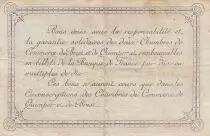 Bons émis sous la responsabilité et
la garantie solidaires des deux Chambres de
Commerce de Brest et de Quimper et remboursables
en billets de la Banque de France par dix ou
multiples de dix
Ces bons n'auront cours que dans les
Circonscriptions des Chambres de Commerce de
Quimper et de Brest